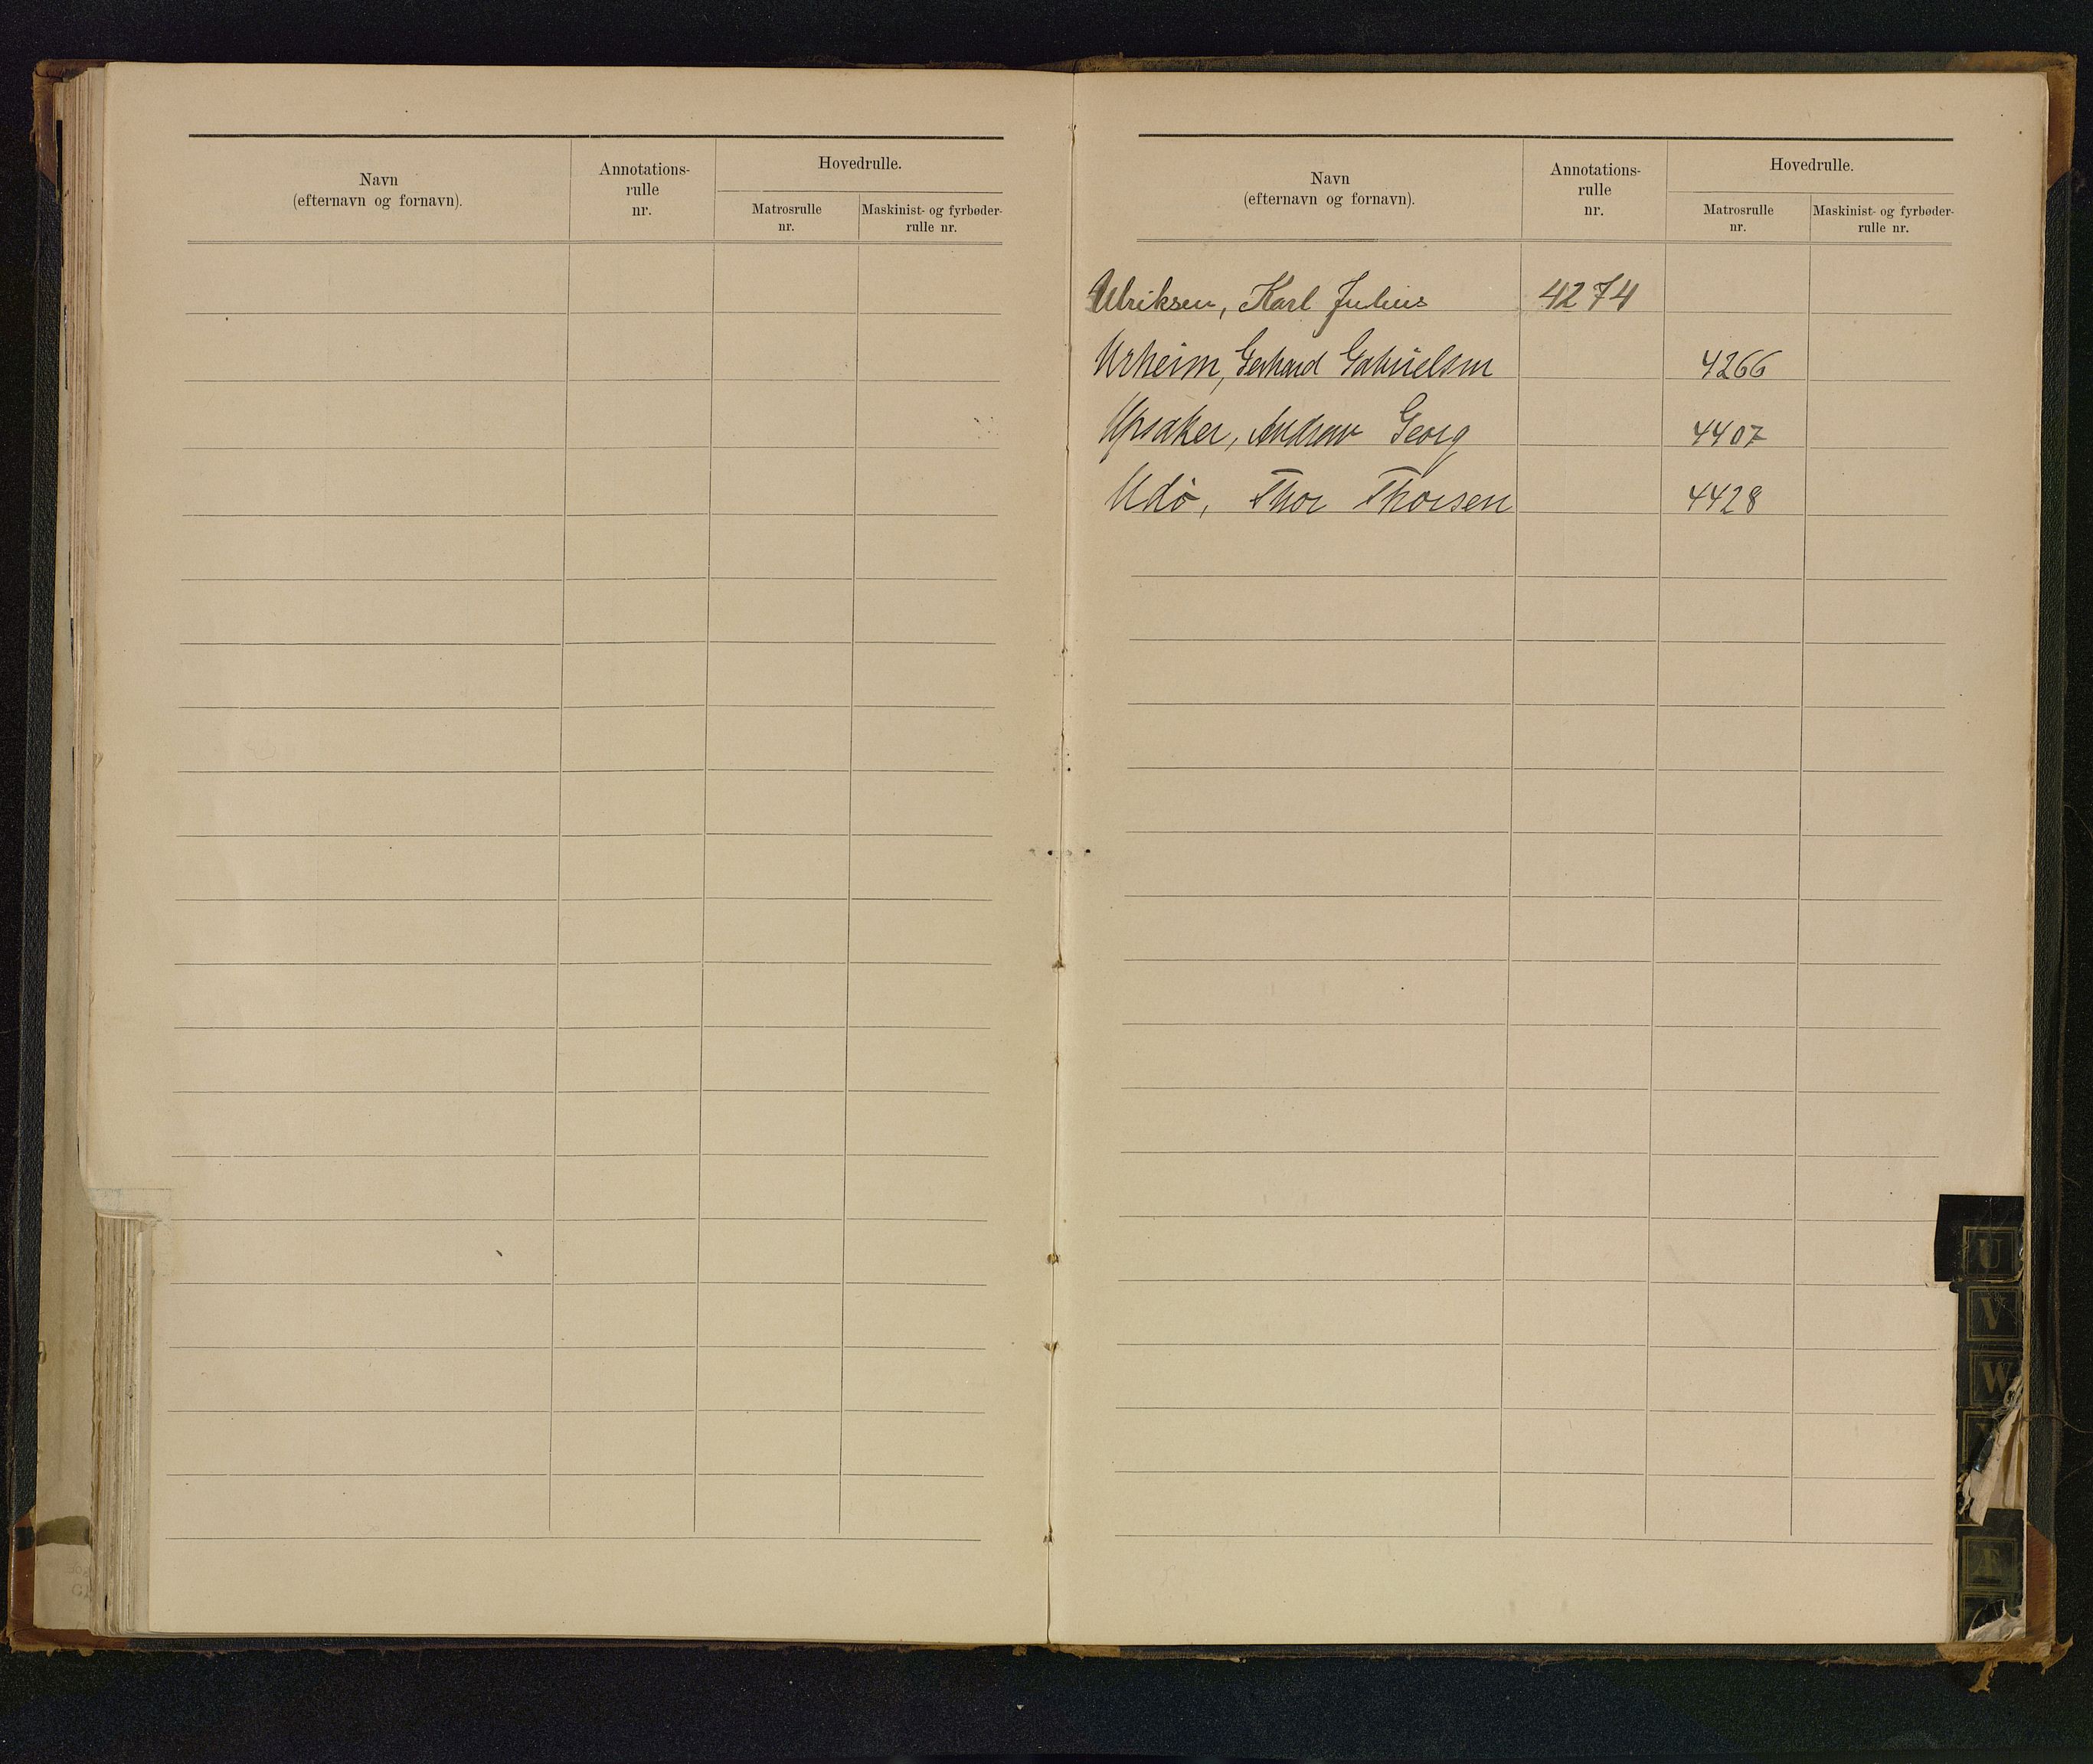 Navn
(efternavn og fornavn).
Annotations-
rulle
nr.
Hovedrulle.
Matrosrulle
nr.
Maskinist- og fyrbøder-
rulle nr.
Navn
(efternavn og fornavn).
Annotations-
rulle
nr.
Hovedrulle.
Matrosrulle
nr.
Maskinist- og fyrbøder-
rulle nr.
Ulriksen, Karl Julius 4274
Urheim, Gerhard Gabrielsen 4266
Upsaker, Andreas Georg 4407
Udö, Thor Thorsen 4428
U
V
W